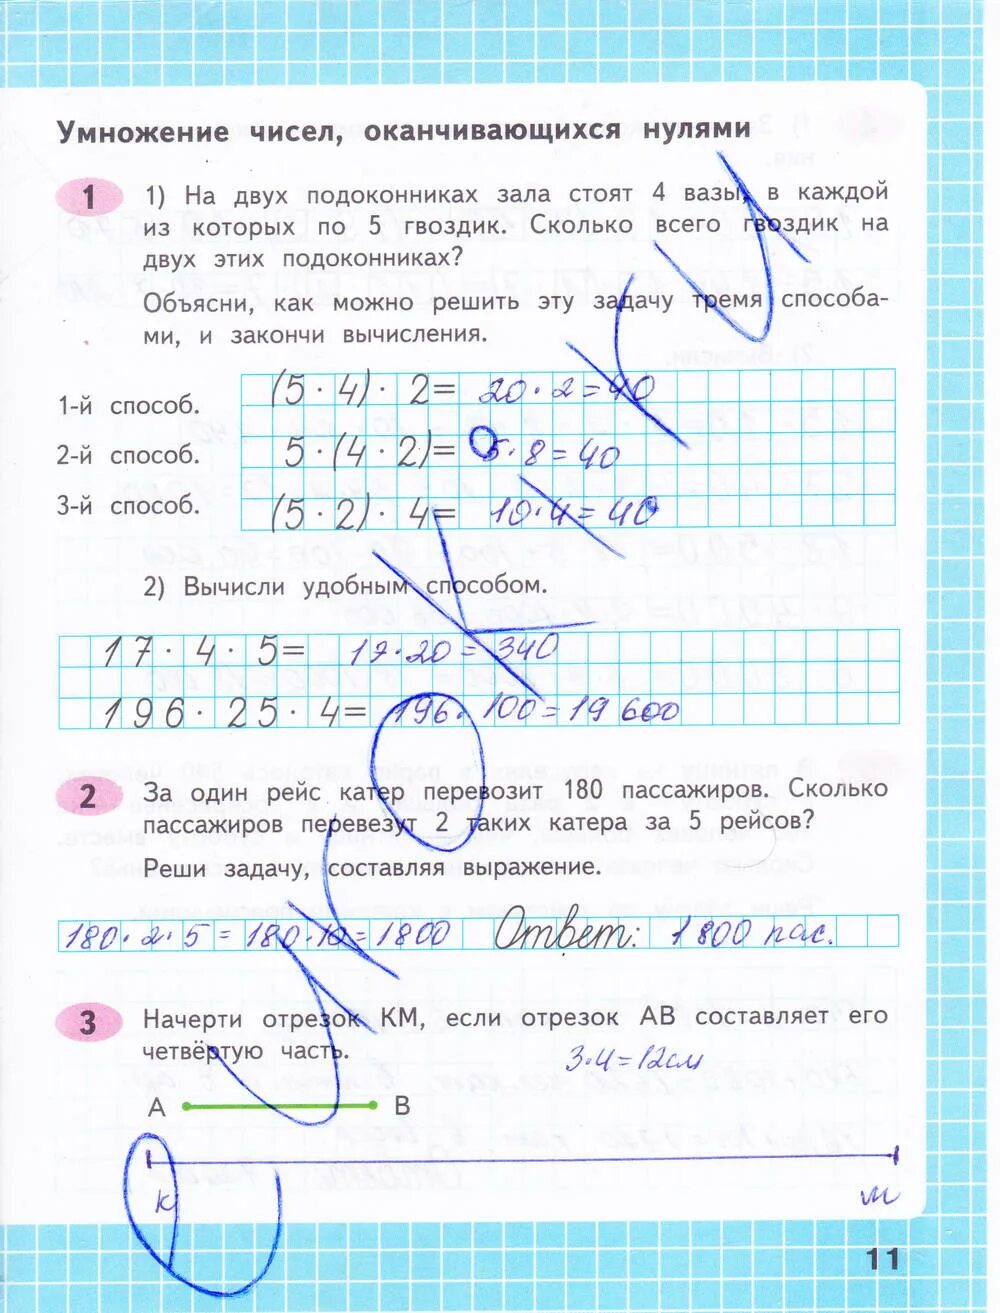 Умножение чисел, оканчивающихся нулями
1 1) На двух подоконниках зала стоят 4 вазы, в каждой
из которых по 5 гвоздик. Сколько всего гвоздик на
двух этих подоконниках?
Объясни, как можно решить эту задачу тремя способа-
ми, и закончи вычисления.
1-й способ. (5 · 4) · 2= 20 · 2 = 40
2-й способ. 5 · (4 · 2)= 5 · 8 = 40
3-й способ. (5 · 2) · 4= 10 · 4 = 40
2) Вычисли удобным способом.
17 · 4 · 5= 17 · 20 = 340
196 · 25 · 4= 196 · 100 = 19 600
2 За один рейс катер перевозит 180 пассажиров. Сколько
пассажиров перевезут 2 таких катера за 5 рейсов?
Реши задачу, составляя выражение.
180 · 2 · 5 = 180 · 10 = 1800 Ответ: 1800 пас.
3 Начерти отрезок КМ, если отрезок АВ составляет его
четвёртую часть.
3·4=12см
А В
К м
11